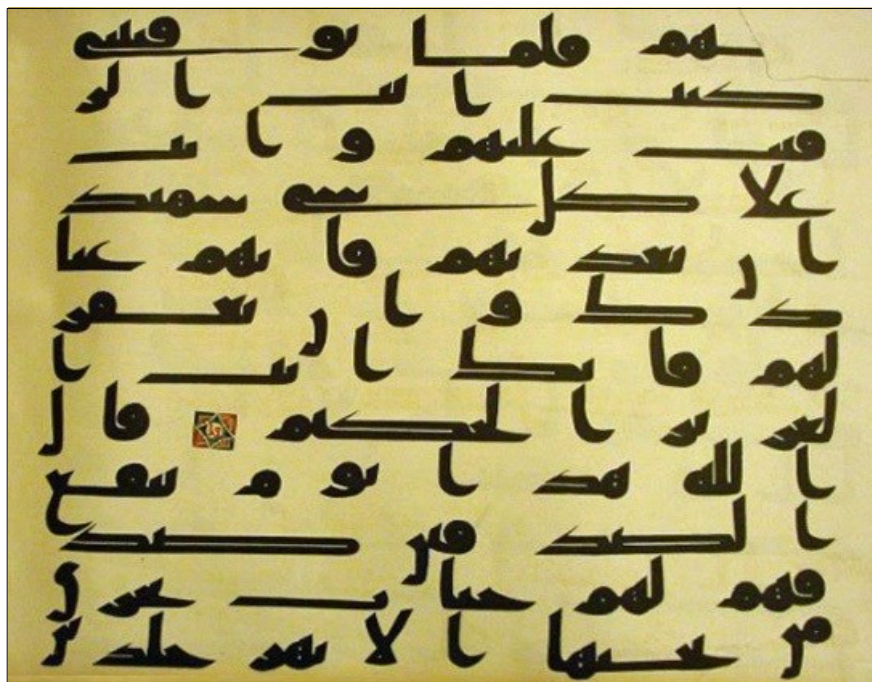 ـهم فلما توفيتني
كنت انت الر
قيب عليهم وانت
علا كل شي شهيد
ان تعذبهم فانهم عبا
دك وان تغفر
لهم فانك انت ا
لعزيز الحكيم قال
الله هذا يوم ينفع
الصدقين صد
قهم لهم جنات تجري
من تحتها الانهر خلدين